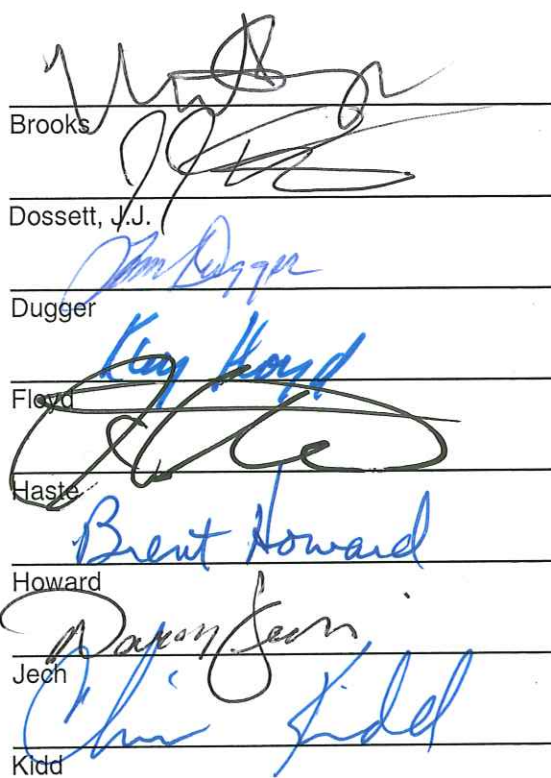 Brooks
Dossett, J.J.
Tom Dugger
Dugger
Kay Floyd
Floyd
Haste
Brent Howard
Howard
Darcy Jech
Jech
Chris Kidd
Kidd